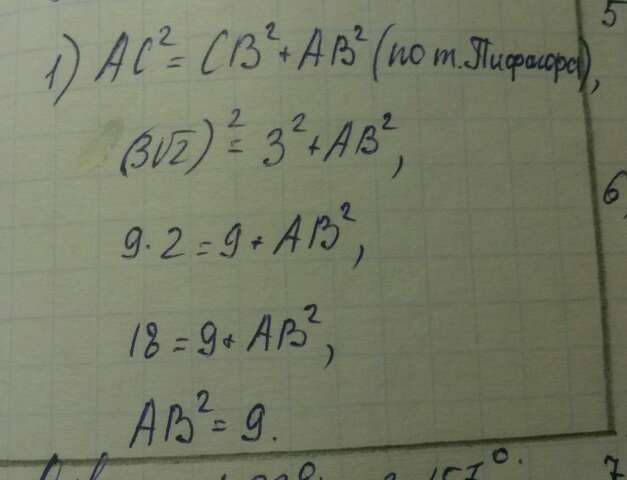 1) AC² = CB² + AB² (по т. Пифагора),
(3√2)² = 3² + AB²,
9·2 = 9 + AB²,
18 = 9 + AB²,
AB² = 9.
5
6
7